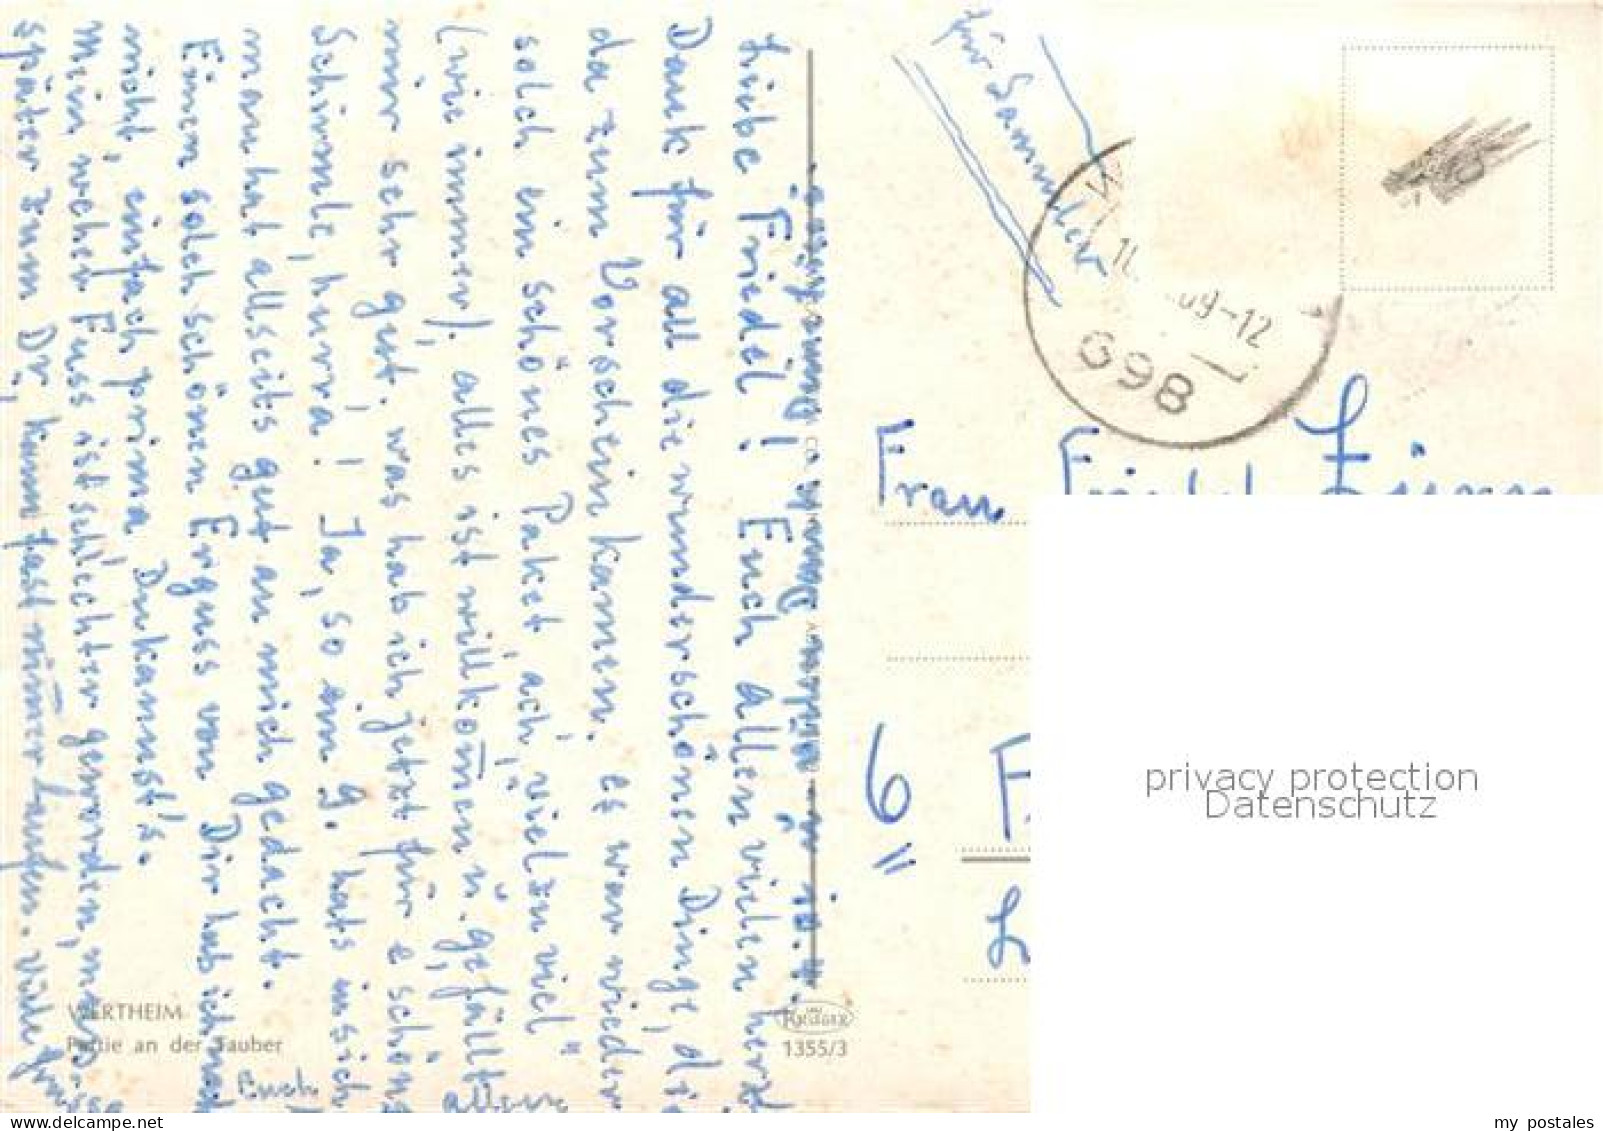 Liebe Friedel! Euch allen vielen herzl
Dank für all die wunderschönen Dinge, die
da zum Vorschein kamen. es war wieder
solch ein schönes Paket, ach, "viel zu viel"
(wie immer). alles ist willkom̄en u. gefällt
mir sehr gut. was hab ich jetzt für e schön
Schirmle, hurra! ! Ja, so ein g. hats in sich
man hat allseits gut an mich gedacht.
Einen solch schönen Erguss von Dir hab ich noch
nicht, einfach prima, Du kannst's.
Mein weher Fuss ist schlechter geworden, muss
später zum Dr, kann fast nim̄er laufen. viele
Euch
allen
für Sammler
W
11
69-12
698
Frau Friedel Zürn
6
F
L
WERTHEIM
Partie an der Tauber
KRÜGER
1355/3
privacy protection
Datenschutz
my postales
www.delcampe.net